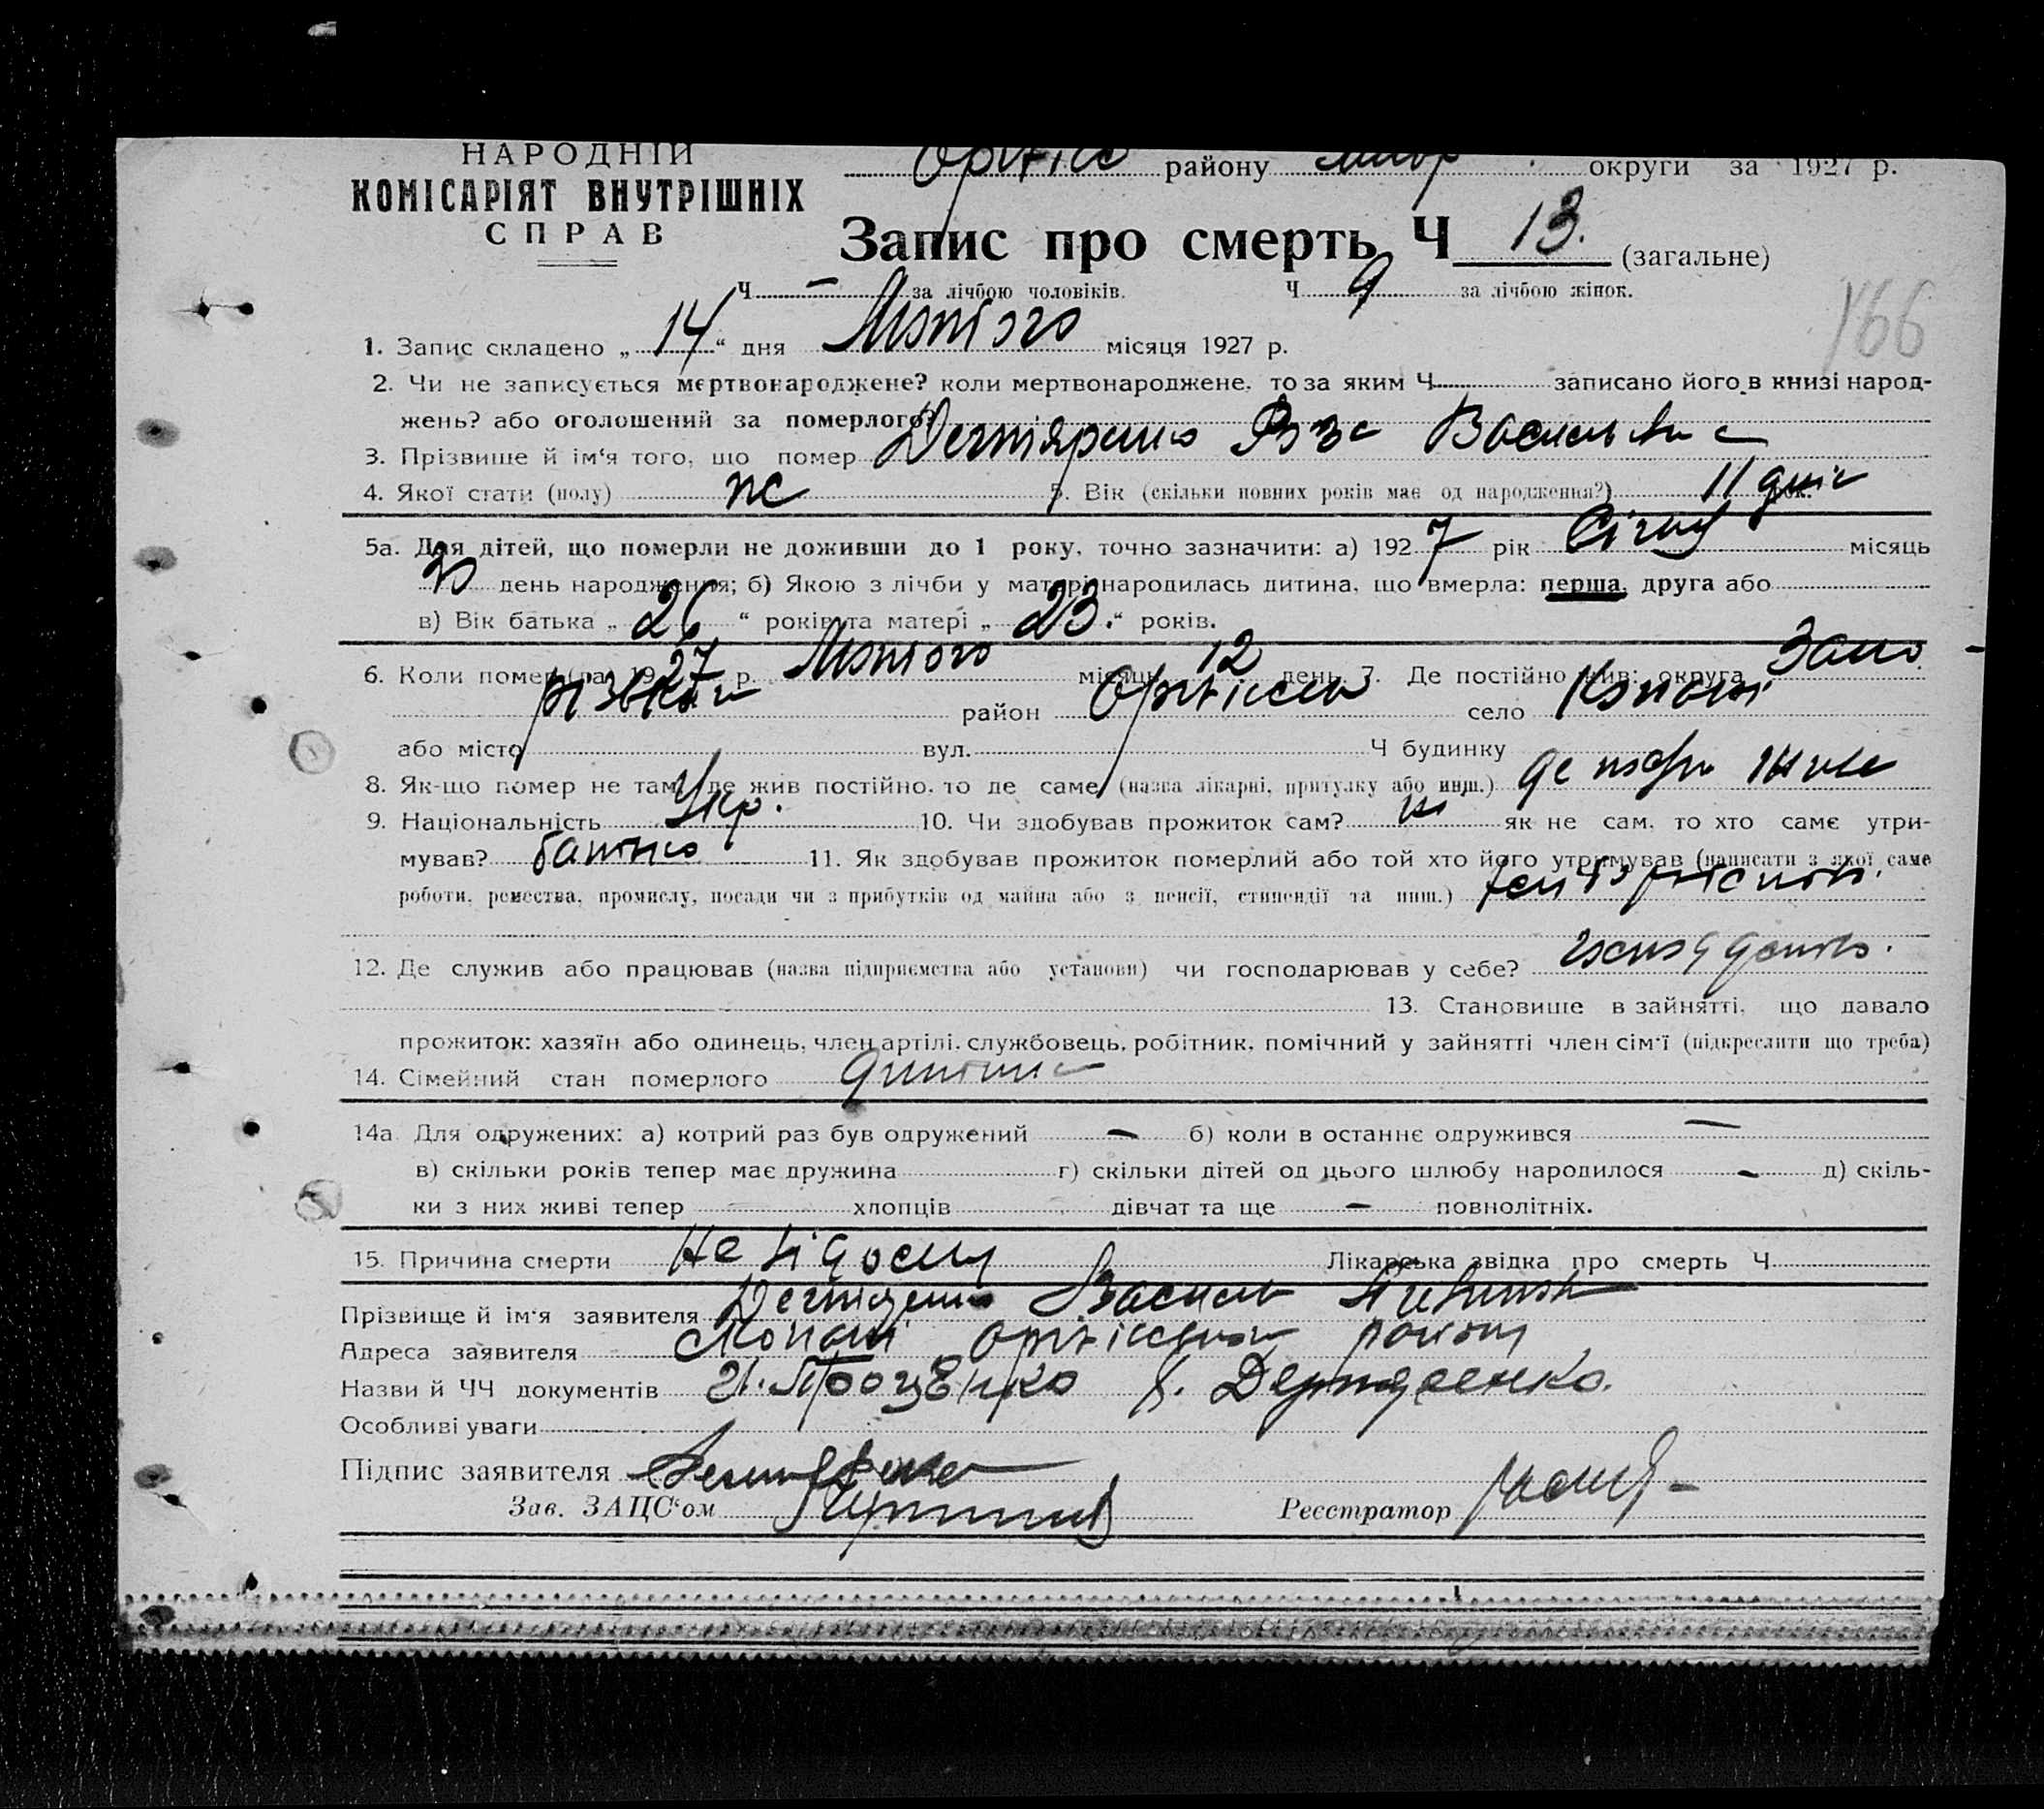 НАРОДНІЙ
району округи за 1927 р.
КОМІСАРІЯТ ВНУТРІШНІХ
СПРАВ
Запис про смерть Ч 13. (загальне)
Ч — за лічбою чоловіків. Ч 9 за лічбою жінок.
166
1. Запис складено „ 14 “ дня Лютого місяця 1927 р.
2. Чи не записується мертвонароджене? коли мертвонароджене, то за яким Ч записано його в книзі народ-
жень? або оголошений за померлого?
3. Прізвище й ім‘я того, що помер
4. Якої стати (полу) ж 5. Вік (скільки повних років має од народження?) 11 днів
5а. Для дітей, що померли не доживши до 1 року, точно зазначити: а) 1927 рік Січня місяць
день народження; б) Якою з лічби у матері народилась дитина, що вмерла: перша, друга або
в) Вік батька „ 26 “ років та матері „ 23. “ років.
6. Коли помер (ла) 1927 р. Лютого місяць 12 день 7. Де постійно жив: округа Запо
різької район Оріхівськ село Копані
або місто вул. Ч будинку
8. Як-що помер не там, де жив постійно, то де саме (назва лікарні, притулку або инш.) де постійно жила
9. Національність Укр. 10. Чи здобував прожиток сам? ні як не сам, то хто саме утри-
мував? батько 11. Як здобував прожиток померлий або той хто його утримував (написати з якої саме
роботи, ремества, промислу, посади чи з прибутків од майна або з пенсії, стипендії та инш.)
12. Де служив або працював (назва підприємства або установи) чи господарював у себе?
13. Становище в зайнятті, що давало
прожиток: хазяїн або одинець, член артілі, службовець, робітник, помічний у зайнятті член сім‘ї (підкреслити що треба)
14. Сімейний стан померлого дитина
14а Для одружених: а) котрий раз був одружений — б) коли в останнє одружився —
в) скільки років тепер має дружина г) скільки дітей од цього шлюбу народилося — д) скіль-
ки з них живі тепер — хлопців дівчат та ще — повнолітніх.
15. Причина смерти Не відому Лікарська звідка про смерть Ч
Прізвище й ім‘я заявителя Василь
Адреса заявителя Копані Оріхівськ району
Назви й ЧЧ документів Проценко
Особливі уваги
Підпис заявителя
Зав. ЗАЦС‘ом Реєстратор